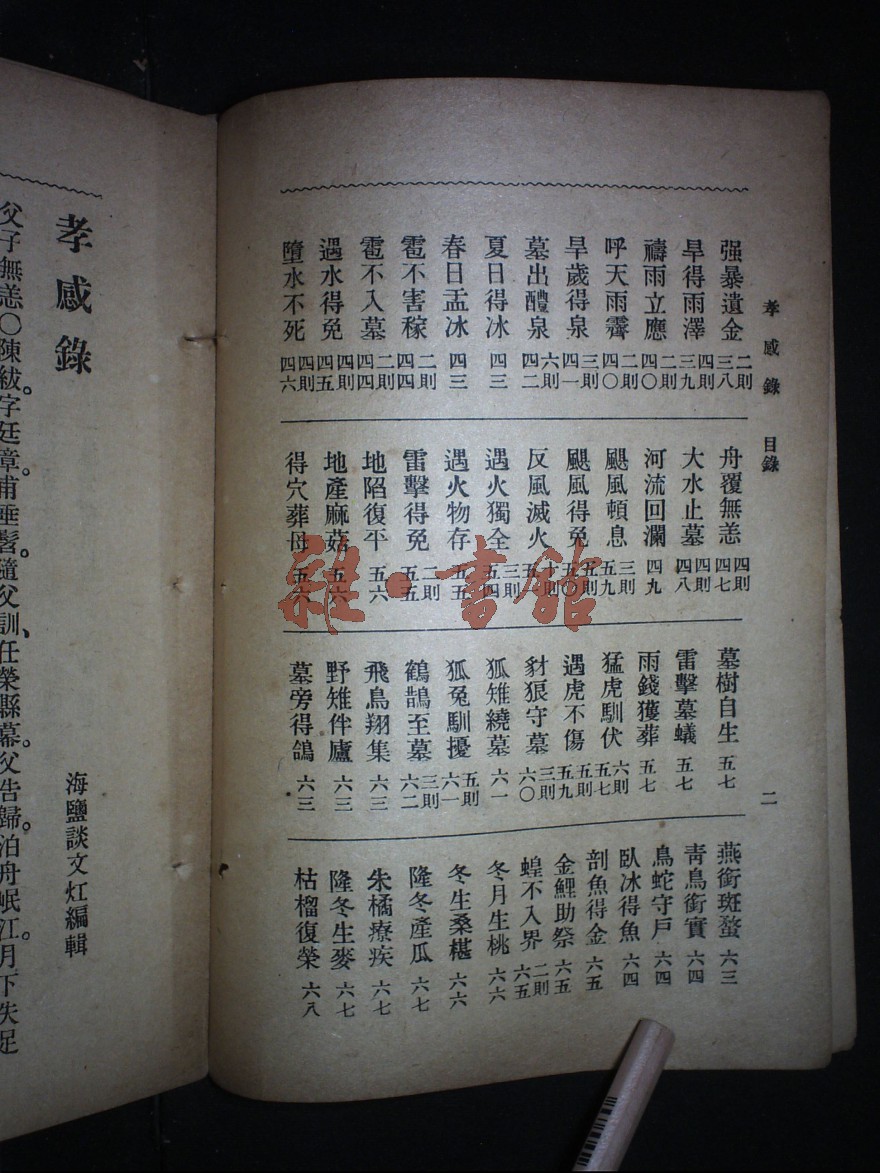 孝感錄 目錄 二
强暴遺金 二則 三八
旱得雨澤 四則 三九
禱雨立應 二則 四〇
呼天雨霽 二則 四〇
旱歲得泉 三則 四一
墓出醴泉 六則 四二
夏日得冰 四三
春日盂冰 四三
雹不害稼 二則 四四
雹不入墓 二則 四四
遇水得免 四則 四五
墮水不死 四則 四六
舟覆無恙 四則 四七
大水止墓 四則 四八
河流回瀾 四九
颶風頓息 三則 五九
颶風得免 五則 五〇
反風滅火 十則
遇火獨全 三則 五四
遇火物存 五五
雷擊得免 二則 五五
地陷復平 五六
地產麻菇 五六
得穴葬母 五六
墓樹自生 五七
雷擊墓蟻 五七
雨錢獲葬 五七
猛虎馴伏 六則 五七
遇虎不傷 五則 五九
豺狼守墓 三則 六〇
狐雉繞墓 六一
狐兔馴擾 五則 六一
鶴鵲至墓 三則 六二
飛鳥翔集 六三
野雉伴廬 六三
墓旁得鴿 六三
燕銜斑蝥 六三
靑鳥銜實 六四
鳥蛇守戶 六四
臥冰得魚 六四
剖魚得金 六五
金鯉助祭 六五
蝗不入界 二則 六五
冬月生桃 六六
冬生桑椹 六六
隆冬產瓜 六七
朱橘療疾 六七
隆冬生麥 六七
枯榴復榮 六八
孝感錄
海鹽談文灴編輯
父子無恙〇陳紱字廷章。甫垂髫。隨父訓、任榮縣幕。父告歸。泊舟岷江。月下失足
雜·書館